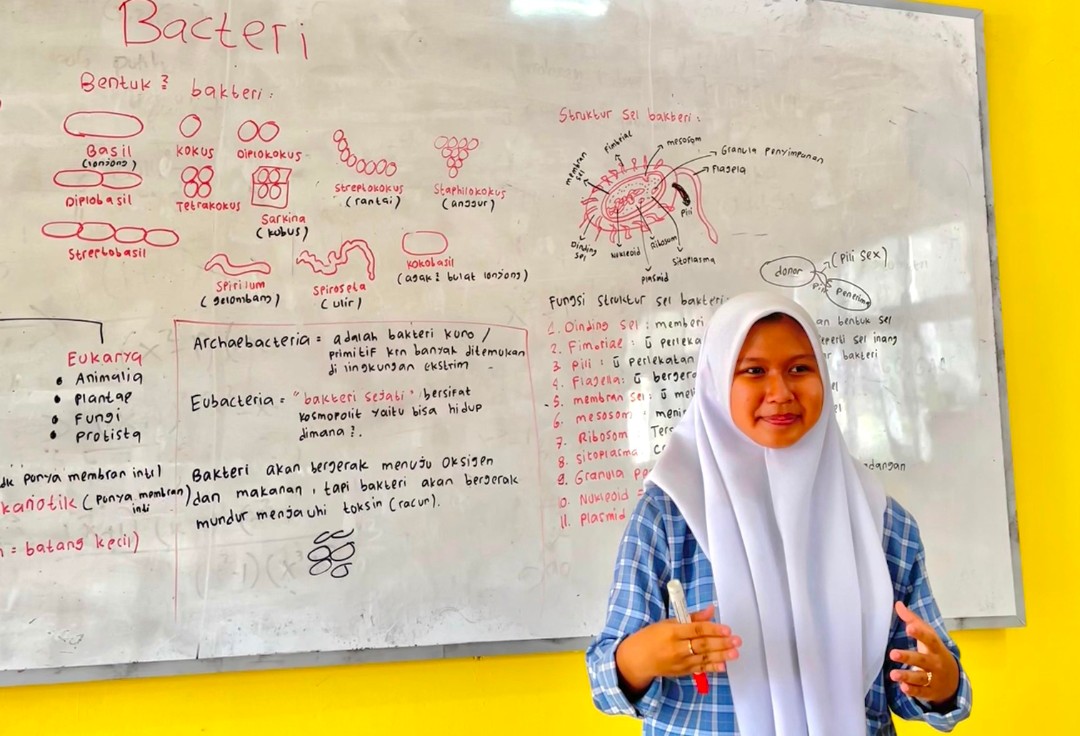 Bacteri
Bentuk² bakteri :
Basil
(lonjong)
kokus
Diplokokus
Streptokokus
(rantai)
Staphilokokus
(anggur)
Diplobasil
Tetrakokus
Sarkina
(kubus)
Streptobasil
Spirilum
(gelombang)
Spiroseta
(ulir)
kokobasil
(agak² bulat lonjong)
Eukarya
• Animalia
• plantae
• Fungi
• protista
punya membran inti
kariotik (punya membran
inti
= batang kecil)
Archaebacteria = adalah bakteri kuno /
primitif krn banyak ditemukan
di lingkungan ekstrim
Eubacteria = "bakteri sejati" bersifat
kosmopolit yaitu bisa hidup
dimana².
Bakteri akan bergerak menuju oksigen
dan makanan, tapi bakteri akan bergerak
mundur menjauhi toksin (racun).
Struktur sel bakteri :
membran
sel
Fimbriae
mesosom
Granula penyimpanan
Flagela
pili
Dinding
sel
Nukleoid
Ribosom
Sitoplasma
plasmid
donor
(Pili sex)
Pili
penerima
Fungsi struktur sel bakteri
1. Dinding sel : memberi an bentuk sel
2. Fimbriae : seperti sel inang
3. pili : perlekatan bakteri
4. Flagella :
5. membran sel :
6. mesosom
7. Ribosom
8. sitoplasma
9. Granula
10. Nukleoid =
11. plasmid